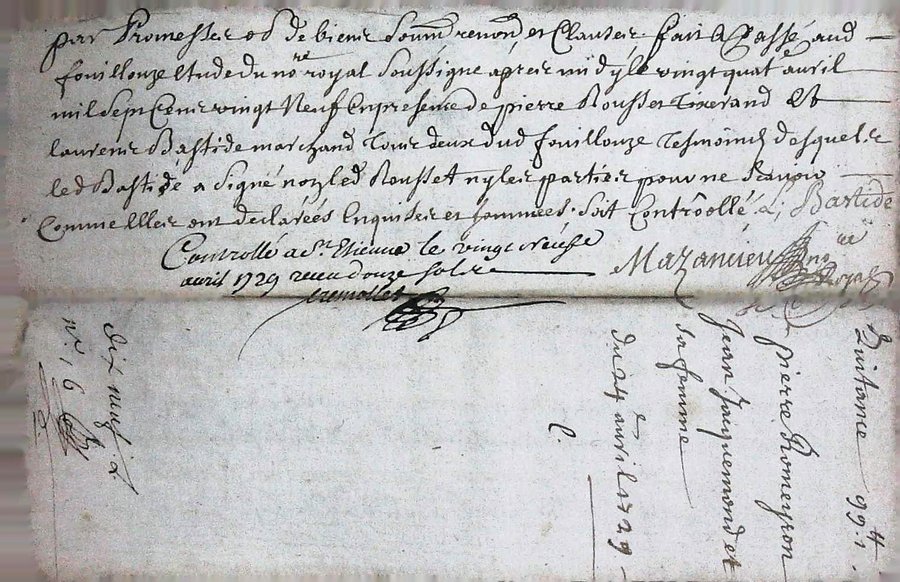 par Promesses o d de biens Soum renon et Clauses fait & Passé aud
fouillouze Etude du no.re royal Soussigne apres midy le vingt quat.e avril
mil sept Cens vingt Neuf En presence de pierre Rousset Tixerand Et
laurens Bastide marchand tous deux dud fouillouze Tesmoins desquels
led Bastide a Signé non led Rousset ny les parties pour ne Scavoir
Comme Elles ont declarées Enquises et Sommées. Soit Controollé &, Bastide
Controllé a St. Etienne le vingt
avril 1729 receu douze sols
Mazancieu no.re Royal
Quitance 99 tt 1
pierre Romeyron
Jean Jacquemond et
sa femme
du 24 avril 1729
C.
dix neuf
n. 6